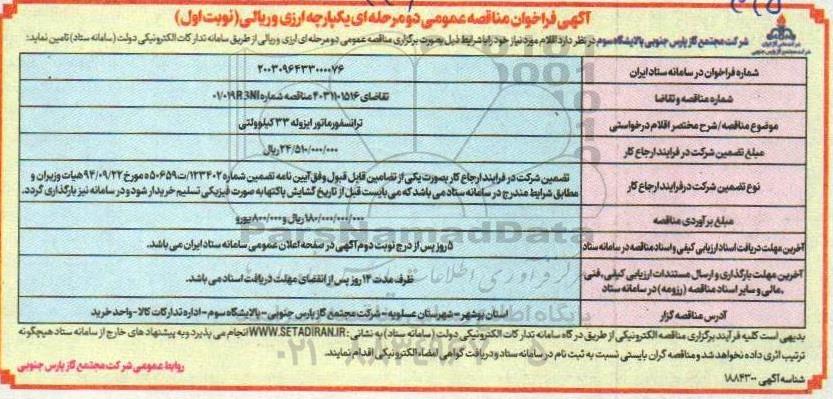 آگهی فراخوان مناقصه عمومی دو مرحله ای یکپارچه ارزی و ریالی (نوبت اول)
شرکت مجتمع گاز پارس جنوبی پالایشگاه سوم در نظر دارد اقلام مورد نیاز خود را با شرایط ذیل بصورت برگزاری مناقصه عمومی دو مرحله ای ارزی و ریالی از طریق سامانه تدارکات الکترونیکی دولت (سامانه ستاد) تامین نماید:
شماره فراخوان در سامانه ستاد ایران ۲۰۰۳۰۹۶۴۳۳۰۰۰۰۷۶
شماره مناقصه و تقاضا تقاضای ۴۰۳۱۱۰۱۵۱۶ مناقصه شماره ۰۱/۰۱۹R3NI
موضوع مناقصه/ شرح مختصر اقلام درخواستی ترانسفورماتور ایزوله ۳۳ کیلوولتی
مبلغ تضمین شرکت در فرایند ارجاع کار ۲۴/۵۱۰/۰۰۰/۰۰۰ ریال
نوع تضمین شرکت در فرایند ارجاع کار تضمین شرکت در فرایند ارجاع کار بصورت یکی از تضامین قابل قبول وفق آیین نامه تضمین شماره ۱۲۳۴۰۲/ت۵۰۶۵۹ه مورخ ۹۴/۰۹/۲۲ هیات وزیران و
مطابق شرایط مندرج در سامانه ستاد می باشد که می بایست قبل از تاریخ گشایش پاکتها به صورت فیزیکی تسلیم خریدار شود و در سامانه نیز بارگذاری گردد.
مبلغ برآوردی مناقصه ۱۸۰/۰۰۰/۰۰۰/۰۰۰ ریال و ۸۰۰/۰۰۰ یورو
آخرین مهلت دریافت اسناد ارزیابی کیفی و اسناد مناقصه در سامانه ستاد ۵ روز پس از درج نوبت دوم آگهی در صفحه اعلان عمومی سامانه ستاد ایران می باشد.
آخرین مهلت بارگذاری و ارسال مستندات ارزیابی کیفی، فنی
،مالی و سایر اسناد مناقصه (رزومه) در سامانه ستاد ظرف مدت ۱۴ روز پس از انقضای مهلت دریافت اسناد می باشد.
آدرس مناقصه گزار استان بوشهر - شهرستان عسلویه - شرکت مجتمع گاز پارس جنوبی - پالایشگاه سوم - اداره تدارکات کالا - واحد خرید
بدیهی است کلیه فرآیند برگزاری مناقصه الکترونیکی از طریق درگاه سامانه تدارکات الکترونیکی دولت (سامانه ستاد) به نشانی: WWW.SETADIRAN.IR انجام می پذیرد و به پیشنهاد های خارج از سامانه ستاد هیچگونه
ترتیب اثری داده نخواهد شد و مناقصه گران بایستی نسبت به ثبت نام در سامانه ستاد و دریافت گواهی امضاء الکترونیکی اقدام نمایند.
شناسه آگهی ۱۸۸۴۳۰۰
روابط عمومی شرکت مجتمع گاز پارس جنوبی
ParsNamadData